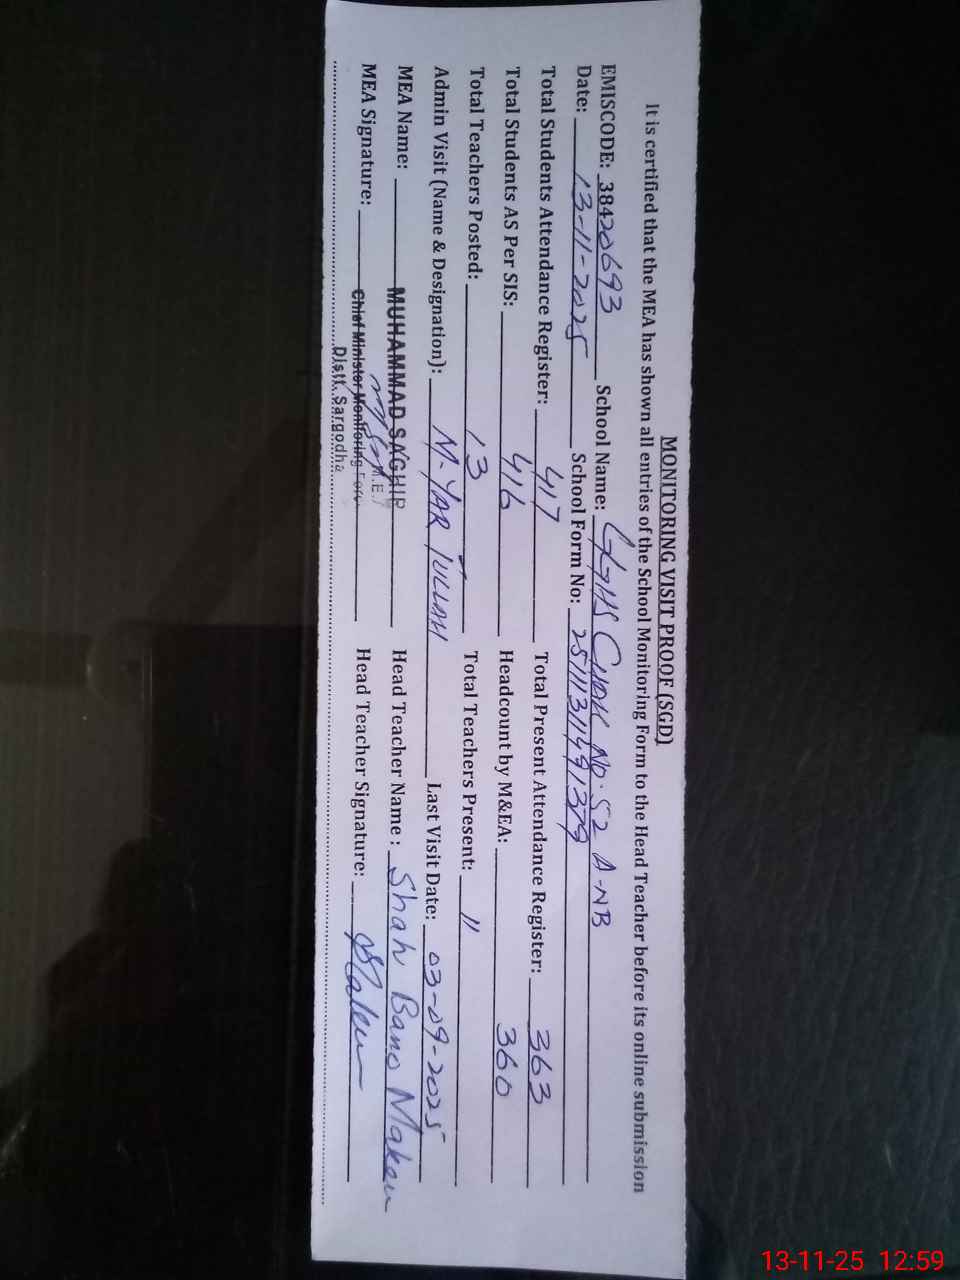 MONITORING VISIT PROOF (SGD)
It is certified that the MEA has shown all entries of the School Monitoring Form to the Head Teacher before its online submission
EMISCODE: 38420693 School Name: GGHS Chak No. 52 A-NB
Date: 13-11-2025 School Form No:
Total Students Attendance Register: 417 Total Present Attendance Register: 363
Total Students AS Per SIS: 416 Headcount by M&EA: 360
Total Teachers Posted: 13 Total Teachers Present: 11
Admin Visit (Name & Designation): M. YAR Last Visit Date: 03-09-2025
MEA Name: MUHAMMAD SAGHIR Head Teacher Name : Shah Bano Maken
MEA Signature: Head Teacher Signature:
Chief Minister Monitoring Force
Distt. Sargodha
13-11-25 12:59